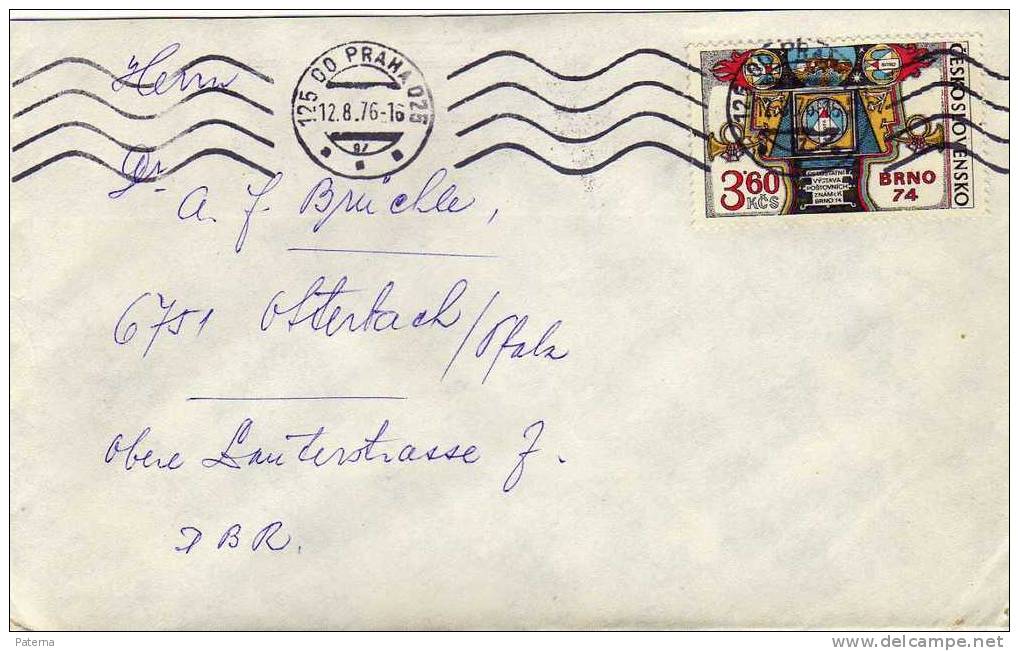 Herrn
Dr.
A. J. Brüchle,
6751 Otterbach/Pfalz
Obere Lauterstrasse 7.
DBR.
125 00 PRAHA 025
12.8.76-16
ČESKOSLOVENSKO
BRNO
3.60
KČS
VÝSTAVA
POŠTOVNÍCH
BRNO 74
BRNO
74
Paterna
http://www.delcampe.net